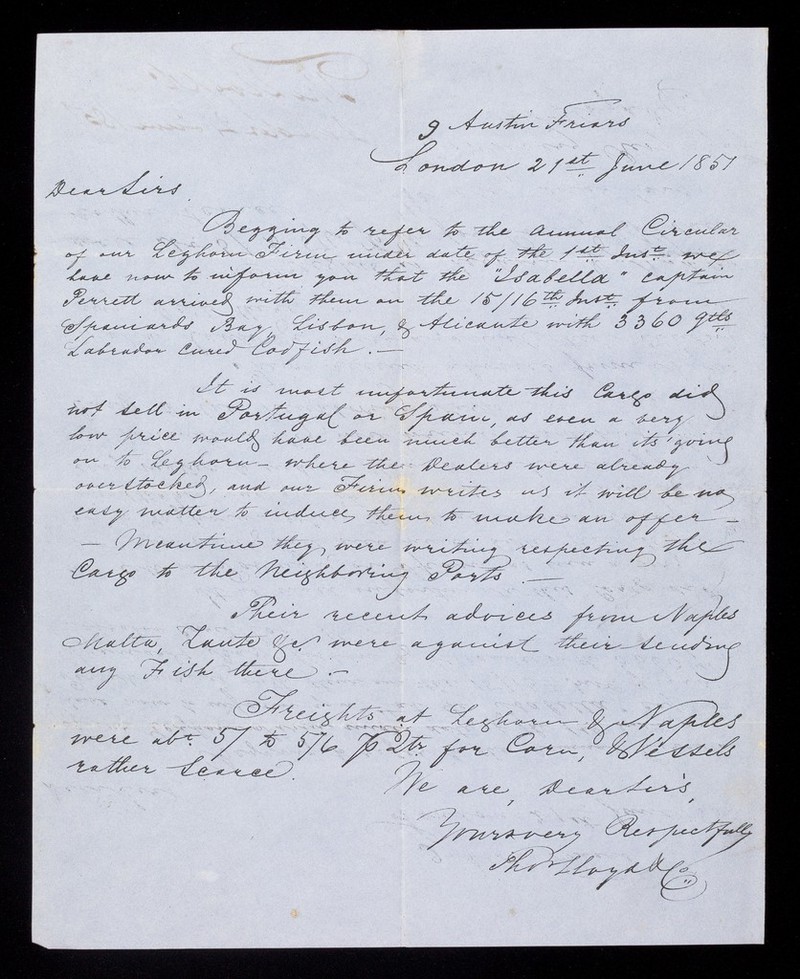 9 Austin Friars
London 21st June 1851
Dear Sirs,
Begging to refer to the Annual Circular
of our Leghorn Firm under date of the 1st Inst. we
have now to inform you that the "Isabella" captain
Perrett arrived with them on the 15/16th Inst. from
Spaniards Bay, Lisbon, & Alicante with 3360 Qtls
Labrador Cured Codfish. —
It is most unfortunate this Cargo did
not sell in Portugal or Spain, as even a very
low price would have been much better than its going
on to Leghorn — where the Dealers were already
overstocked, and our Firm writes us it will be no
easy matter to induce them to make an offer —
— Meantime they were writing respecting the
Cargo to the Neighboring Ports. —
Their recent advices from Naples
Malta, Zante &c. were against their sending
any Fish there. —
Freights at Leghorn & Naples
were abt. 5/ to 5/6 Qtr for Corn, & Vessels
rather Scarce.
We are, Dear Sirs,
Yours very Respectfully
Thos Lloyd & Co